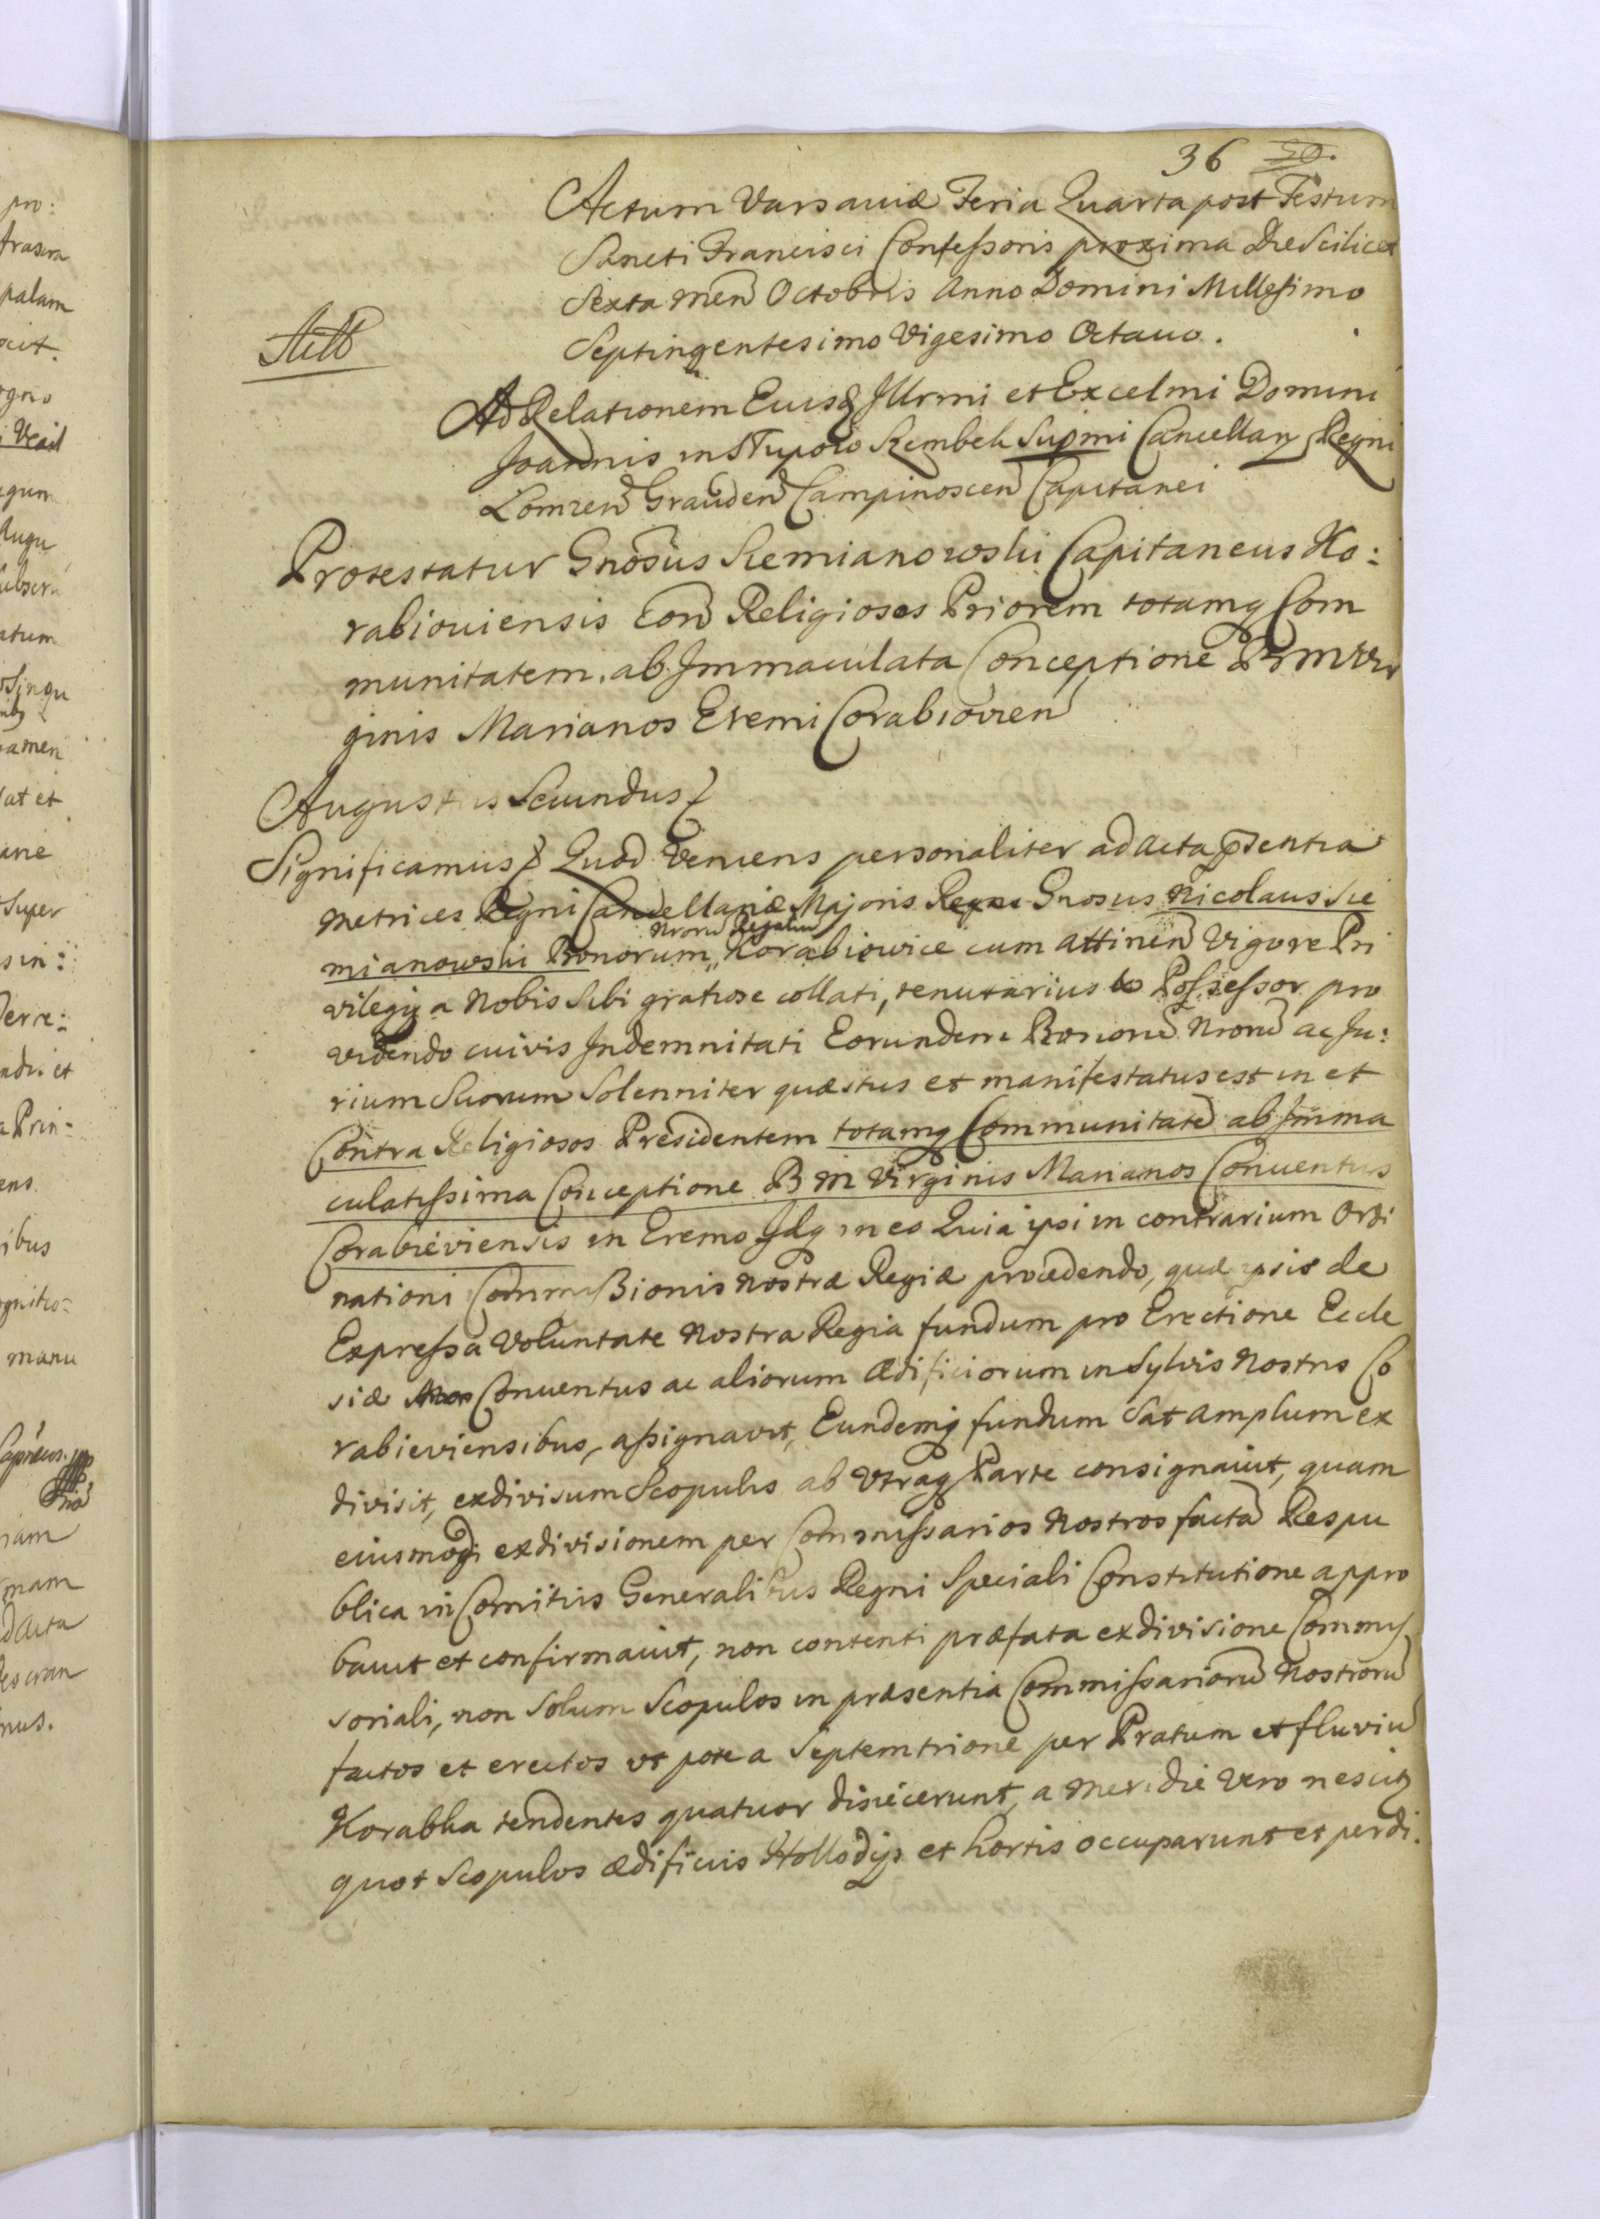 36 20.
Actum Varsaviæ Feria Quarta post Festum
Sancti Francisci Confessoris proxima Die Scilicet
Sexta Men Octobris Anno Domini Millesimo
Septingentesimo Vigesimo Octavo.
Ad Relationem Eiusq Illrmi et Excelmi Domini
Joannis in Stupow Szembek Supmi Cancellarÿ Regni
Lomzen Grauden Campinoscen Capitanei
Protestatur Gnosus Siemianowski Capitaneus Ko:
rabioviensis Con Religiosos Priorem totamq Com
munitatem ab Immaculata Conceptione B m Vir
ginis Marianos Eremi Corabiovien
Augustus Secundus
Significamus Quod Veniens personaliter ad Acta psentia
Metrices Regni Cancellariæ Majoris Regni Gnosus Nicolaus Sie
Nroru Regaliu
mianowski Bonorum Korabiowice cum attinen Vigore Pri
vilegÿ a Nobis Sibi gratiose collati, tenutarius Possessor pro
videndo cuivis Indemnitati Eorundem Bonoru Nroru ac Ju:
rium Suorum Solenniter quæstus et manifestatus est in et
Contra Religiosos Presidentem totamq Communitate ab Imma
culatissima Conceptione B M Virginis Marianos Conventus
Corabieviensis in Eremo Idq in eo Quia ipsi in contrarium Ordi
nationi Commissionis Nostræ Regiæ procedendo, quæ ipsis de
Expressa Voluntate Nostra Regia fundum pro Erectione Eccle
siæ Conventus ac aliorum Ædificiorum in Sylvis Nostris Co
rabieviensibus, assignavit, Eundemq fundum Sat amplum ex
divisit, exdivisum Scopulis ab Vtraq Parte consignavit, quam
eiusmodi exdivisionem per Commissarios Nostros facta Respu
blica in Comitiis Generalibus Regni Speciali Constitutione appro
bavit et confirmavit, non contenti præfata exdivisione Commis
soriali, non Solum Scopulos in præsentia Commissarioru Nostroru
factos et erectos vt pote a Septemtrione per Pratum et fluviu
Korabka tendentes quatuor disiecerunt, a Meridie Vero nescitq
quot Scopulos ædificiis et hortis occuparunt et perdi.